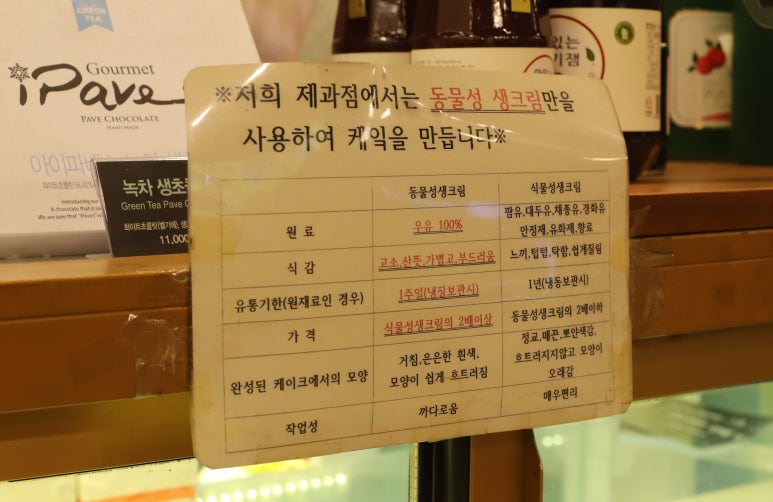 GREEN TEA
Gourmet
iPave
PAVE CHOCOLATE
HAND MADE
녹차 생초
Green Tea Pave
11,000
있는
기잼
※저희 제과점에서는 동물성 생크림만을
사용하여 케익을 만듭니다※
동물성생크림 식물성생크림
원료 우유 100% 팜유,대두유,채종유,경화유
안정제,유화제,향료
식감 고소,산뜻,가볍고,부드러움 느끼,텁텁,탁함,쉽게질림
유통기한(원재료인 경우) 1주일(냉장보관시) 1년(냉동보관시)
가격 식물성생크림의 2배이상 동물성생크림의 2배이하
완성된 케이크에서의 모양 거침,은은한 흰색,
모양이 쉽게 흐트러짐
정교,매끈,뽀얀색감,
흐트러지지않고 모양이
오래감
작업성 까다로움 매우편리